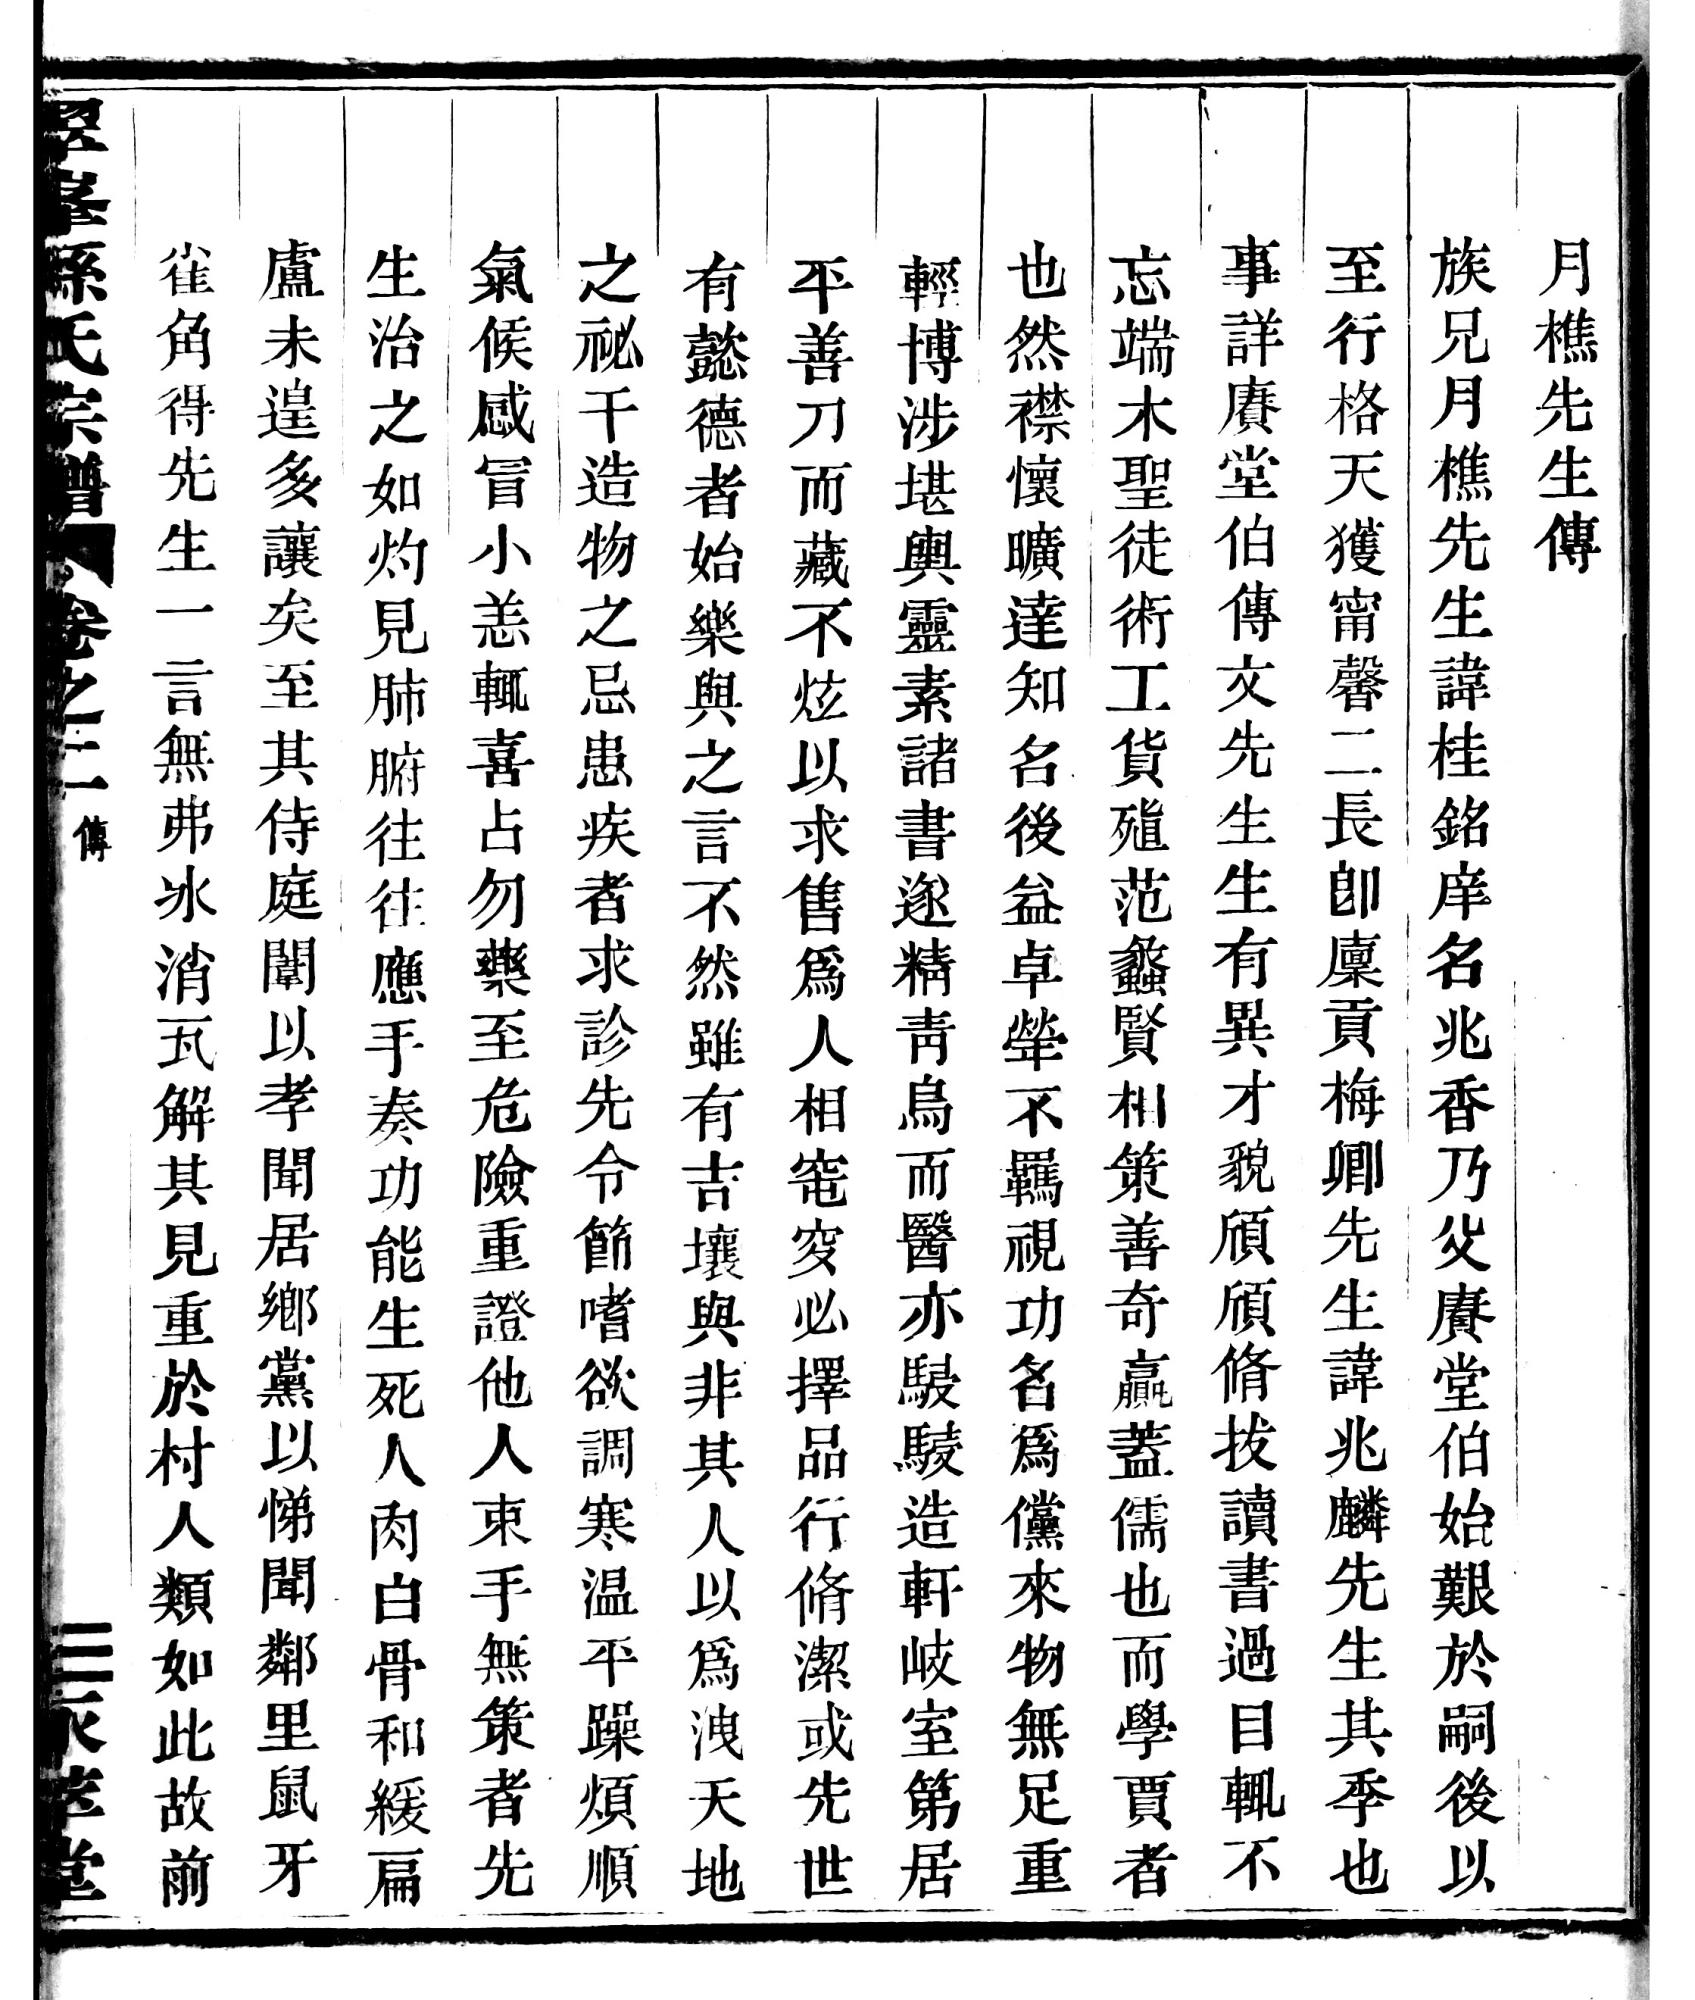 月樵先生傳
族兄月樵先生諱桂銘庠名兆香乃父賡堂伯始艱於嗣後以
至行格天獲甯馨二長卽廩貢梅卿先生諱兆麟先生其季也
事詳賡堂伯傳文先生生有異才貌頎頎脩拔讀書過目輒不
忘端木聖徒術工貨殖范蠡賢相策善奇贏蓋儒也而學賈者
也然襟懷曠達知名後益卓犖不羈視功名爲儻來物無足重
輕博涉堪輿靈素諸書遂精靑烏而醫亦駸駸造軒岐室第居
平善刀而藏不炫以求售爲人相窀穸必擇品行脩潔或先世
有懿德者始樂與之言不然雖有吉壤與非其人以爲洩天地
之祕干造物之忌患疾者求診先令節嗜欲調寒温平躁煩順
氣候感冒小恙輒喜占勿藥至危險重證他人束手無策者先
生治之如灼見肺腑往往應手奏功能生死人肉白骨和緩扁
盧未遑多讓矣至其侍庭闈以孝聞居鄕黨以悌聞鄰里鼠牙
雀角得先生一言無弗氷消瓦解其見重於村人類如此故前
孫氏宗譜 卷之二 傳 三 承萃堂